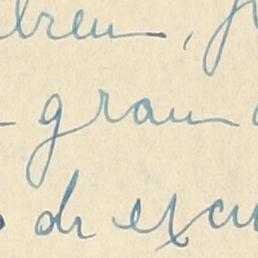 breu,
gran
de excu